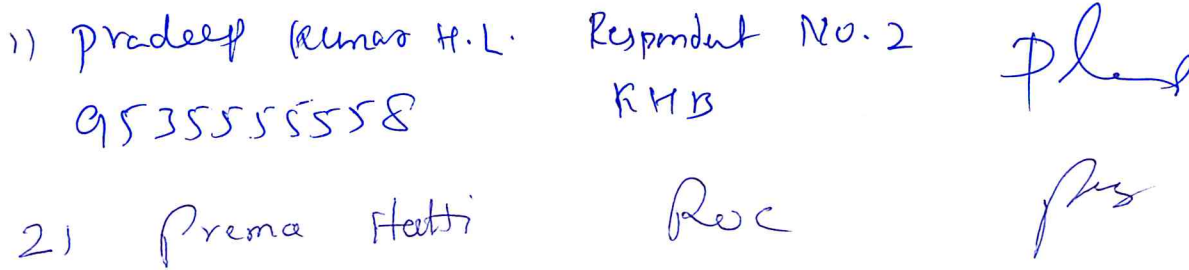 1) Pradeep Kumar H.L. Respondent No. 2
9535555558 KHB
2) Prema Hatti RoC